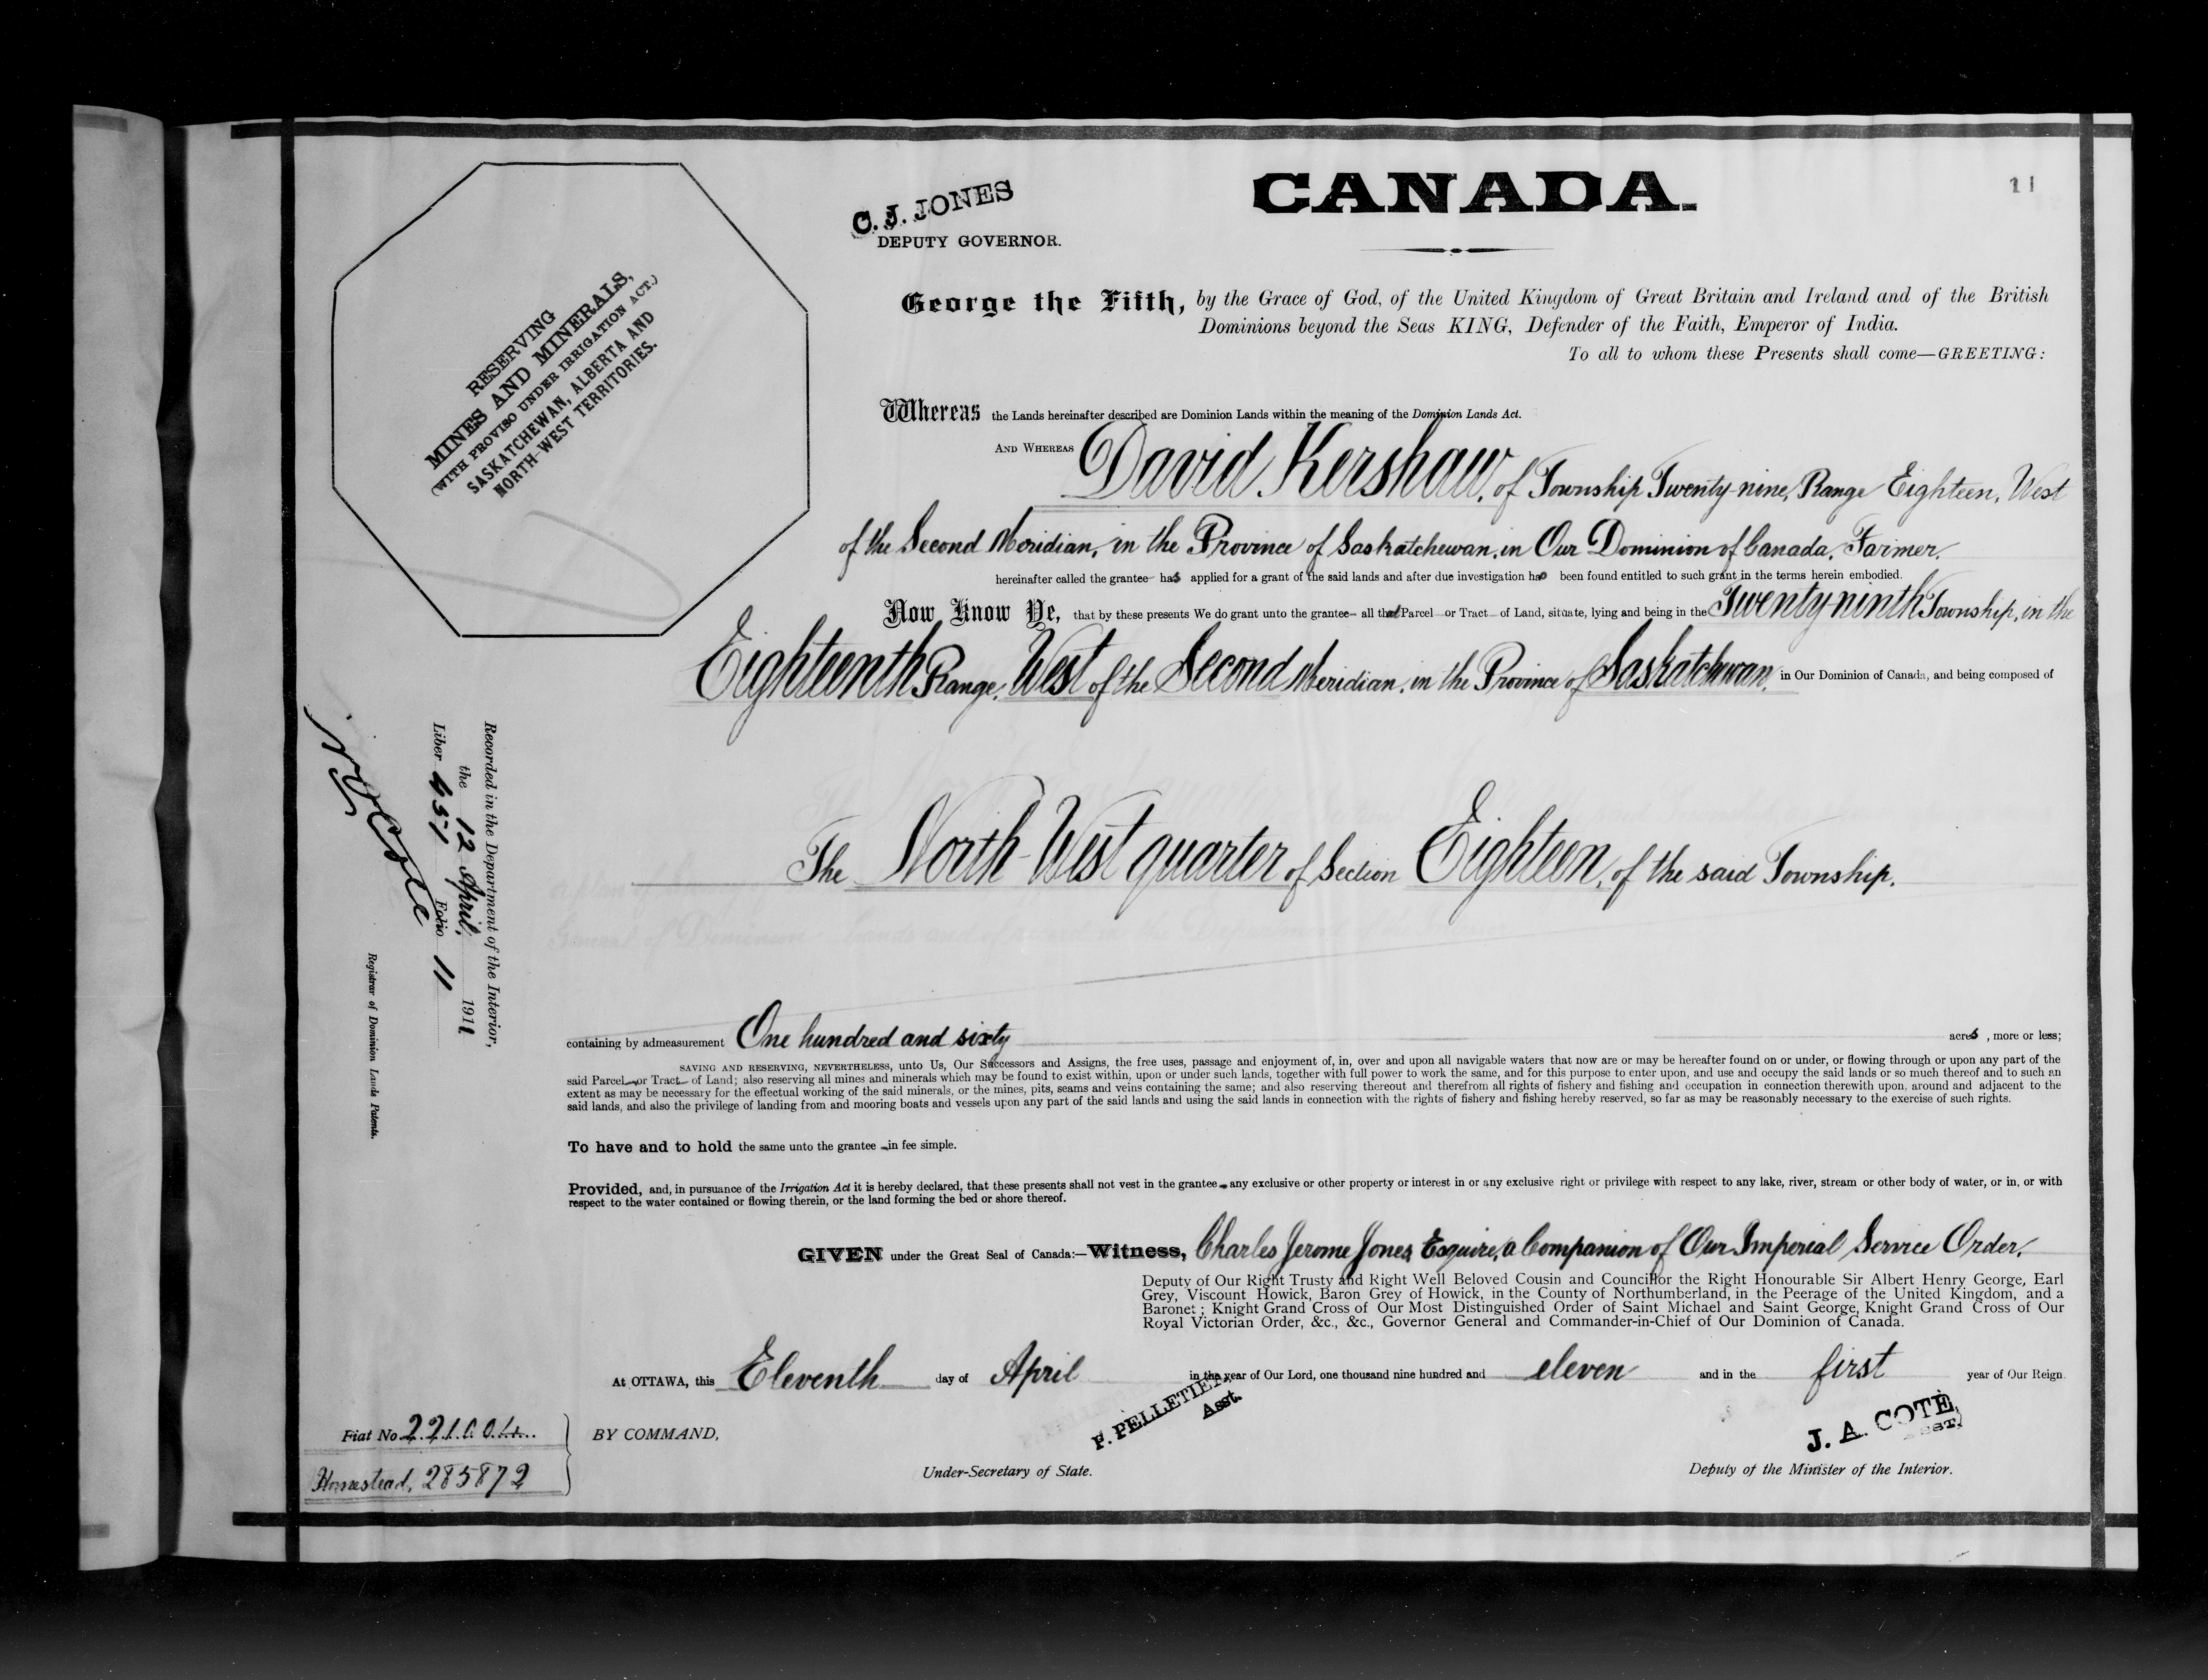 CANADA.
11
C. J. JONES
DEPUTY GOVERNOR.
RESERVING
MINES AND MINERALS,
(WITH PROVISO UNDER IRRIGATION ACT.)
SASKATCHEWAN, ALBERTA AND
NORTH-WEST TERRITORIES.
George the Fifth, by the Grace of God, of the United Kingdom of Great Britain and Ireland and of the British
Dominions beyond the Seas KING, Defender of the Faith, Emperor of India.
To all to whom these Presents shall come—GREETING:
Whereas the Lands hereinafter described are Dominion Lands within the meaning of the Dominion Lands Act.
AND WHEREAS David Kershaw, of Township Twenty-nine, Range Eighteen, West
of the Second Meridian, in the Province of Saskatchewan, in Our Dominion of Canada, Farmer.
hereinafter called the grantee has applied for a grant of the said lands and after due investigation has been found entitled to such grant in the terms herein embodied.
Now Know Ye, that by these presents We do grant unto the grantee all that Parcel or Tract of Land, situate, lying and being in the Twenty-ninth Township, in the
Eighteenth Range, West of the Second Meridian, in the Province of Saskatchewan, in Our Dominion of Canada, and being composed of
The North-West quarter of Section Eighteen, of the said Township.
containing by admeasurement One hundred and sixty acres, more or less;
SAVING AND RESERVING, NEVERTHELESS, unto Us, Our Successors and Assigns, the free uses, passage and enjoyment of, in, over and upon all navigable waters that now are or may be hereafter found on or under, or flowing through or upon any part of the
said Parcel or Tract of Land; also reserving all mines and minerals which may be found to exist within, upon or under such lands, together with full power to work the same, and for this purpose to enter upon, and use and occupy the said lands or so much thereof and to such an
extent as may be necessary for the effectual working of the said minerals, or the mines, pits, seams and veins containing the same; and also reserving thereout and therefrom all rights of fishery and fishing and occupation in connection therewith upon, around and adjacent to the
said lands, and also the privilege of landing from and mooring boats and vessels upon any part of the said lands and using the said lands in connection with the rights of fishery and fishing hereby reserved, so far as may be reasonably necessary to the exercise of such rights.
To have and to hold the same unto the grantee in fee simple.
Provided, and, in pursuance of the Irrigation Act it is hereby declared, that these presents shall not vest in the grantee any exclusive or other property or interest in or any exclusive right or privilege with respect to any lake, river, stream or other body of water, or in, or with
respect to the water contained or flowing therein, or the land forming the bed or shore thereof.
GIVEN under the Great Seal of Canada:—Witness, Charles Jerome Jones, Esquire, a Companion of Our Imperial Service Order,
Deputy of Our Right Trusty and Right Well Beloved Cousin and Councillor the Right Honourable Sir Albert Henry George, Earl
Grey, Viscount Howick, Baron Grey of Howick, in the County of Northumberland, in the Peerage of the United Kingdom, and a
Baronet; Knight Grand Cross of Our Most Distinguished Order of Saint Michael and Saint George, Knight Grand Cross of Our
Royal Victorian Order, &c., &c., Governor General and Commander-in-Chief of Our Dominion of Canada.
At OTTAWA, this Eleventh day of April in the year of Our Lord, one thousand nine hundred and eleven and in the first year of Our Reign
BY COMMAND,
P. PELLETIER,
Asst.
Under-Secretary of State.
J. A. COTE,
ASST.
Deputy of the Minister of the Interior.
Fiat No 221004
Homestead, 285872
Recorded in the Department of the Interior,
the 12 April, 1911
Liber 451 Folio 11
Cote
Registrar of Dominion Lands Patents.